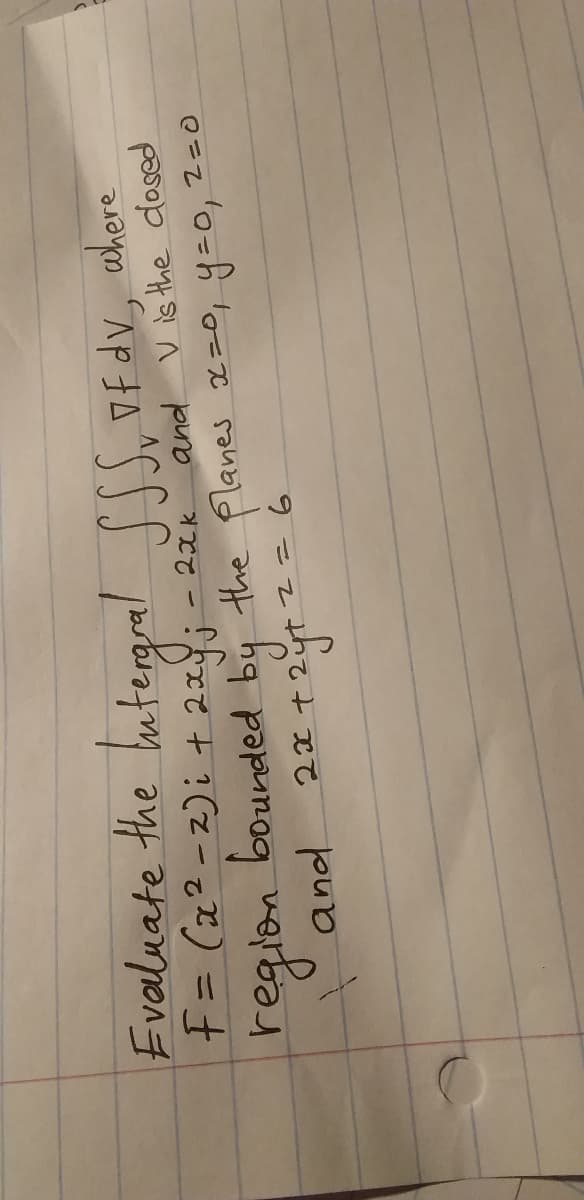 Evaluate the Intergral ∫∫∫ᵥ ∇F dV, where
F = (x² - z)i + 2xyj - 2xk and V is the closed
region bounded by the planes x=0, y=0, z=0
and 2x + 2y + z = 6